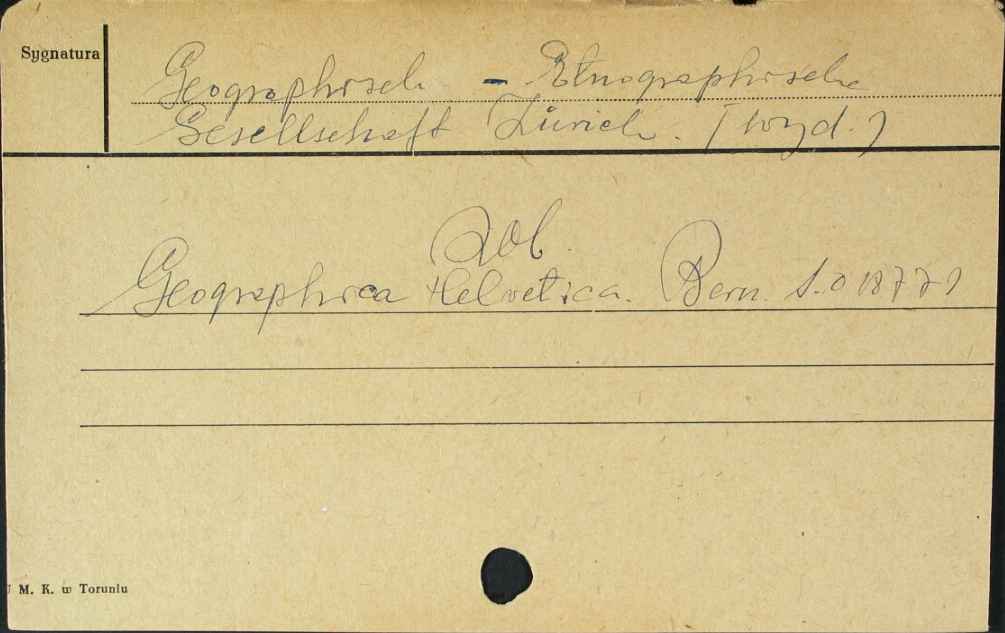 Sygnatura
Geographisch - Etnographische
Gesellschaft Zürich. [wyd.]
Zob.
Geographica Helvetica. Bern.
M. K. w Toruniu